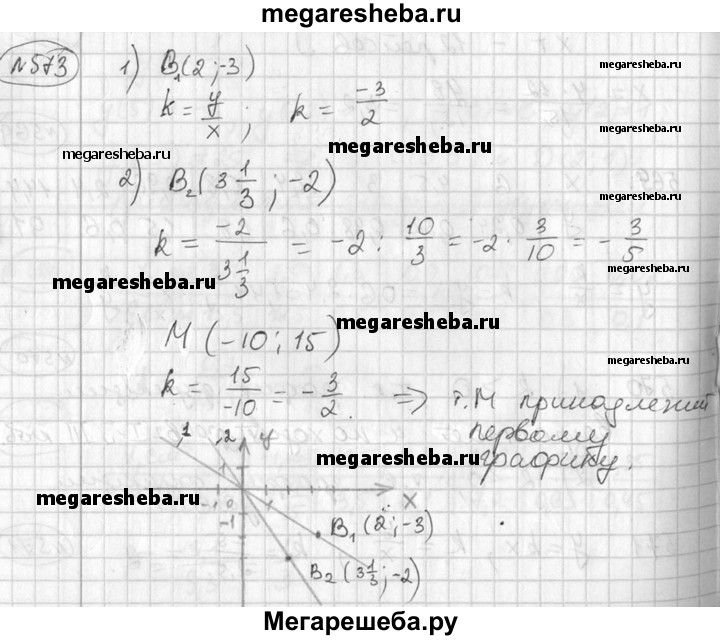 megaresheba.ru
№573 1) B₁(2;-3)
megaresheba.ru
k = y/x; k = -3/2
megaresheba.ru
megaresheba.ru
megaresheba.ru
2) B₂(3 1/3; -2)
megaresheba.ru
k = -2/(3 1/3) = -2 : 10/3 = -2 · 3/10 = -3/5
megaresheba.ru
megaresheba.ru
M(-10; 15)
megaresheba.ru
megaresheba.ru
k = 15/-10 = -3/2. => т.M принадлежит
первому
графику.
megaresheba.ru
1 2 y
1
megaresheba.ru
-1 0 x
-1
B₁(2;-3)
B₂(3 1/3;-2)
megaresheba.ru
Мегарешеба.ру